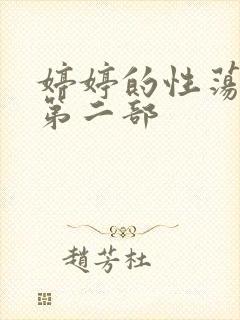 婷婷的性荡
第二部
趙芳杜